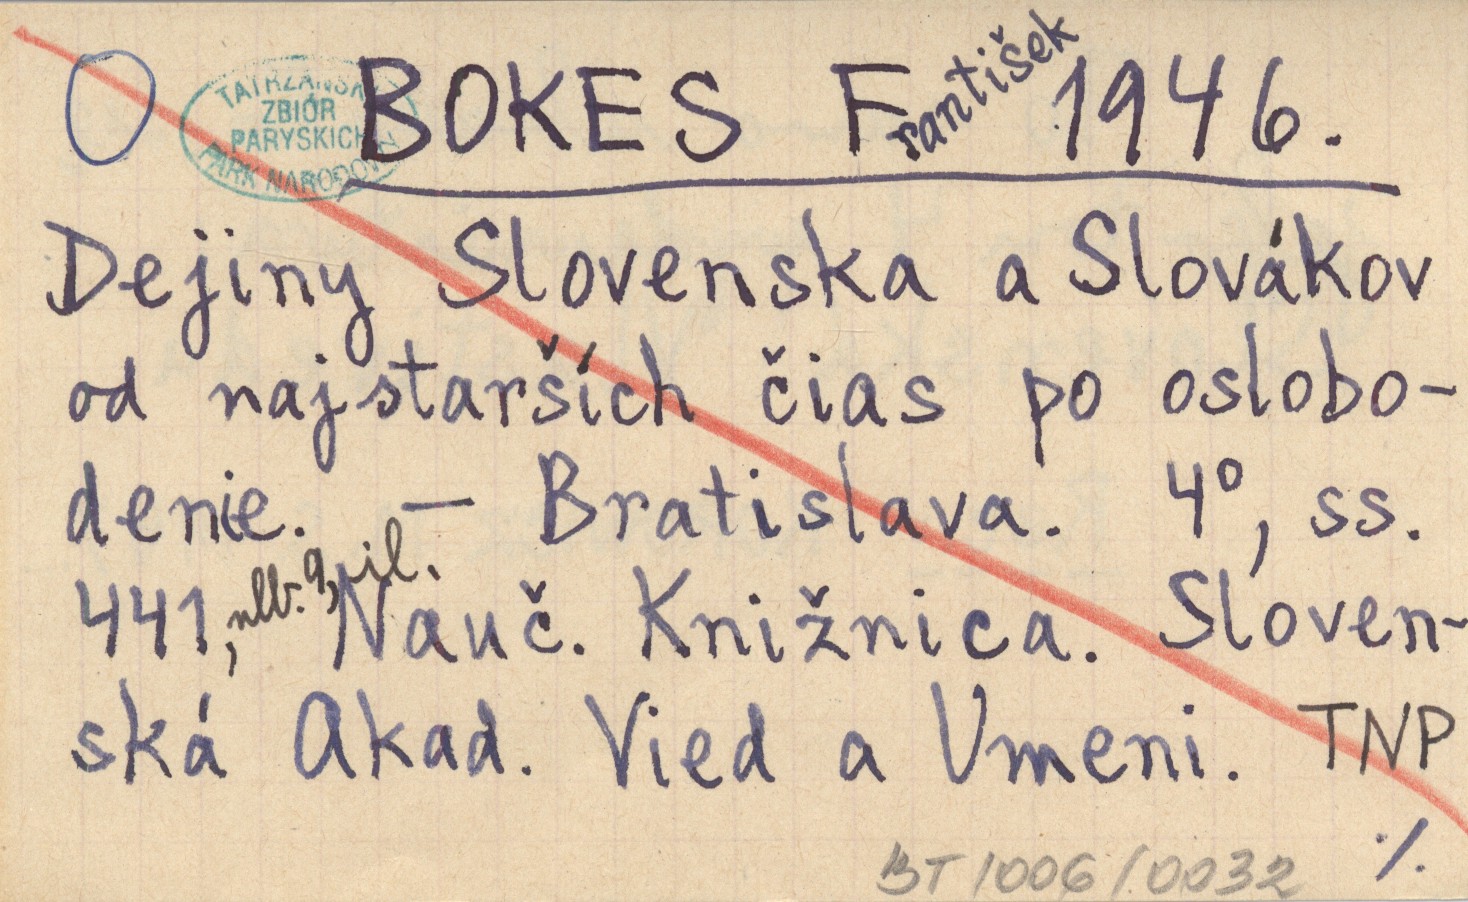 O BOKES František 1946.
TATRZAŃSKI
ZBIÓR
PARYSKICH
PARK NARODOWY
Dejiny Slovenska a Slovákov
od najstarších čias po oslobo-
denie. — Bratislava. 4°, ss.
441, nlb. 9, il. Nauč. Knižnica. Sloven-
ská Akad. Vied a Umeni. TNP
./.
BT/006/0032